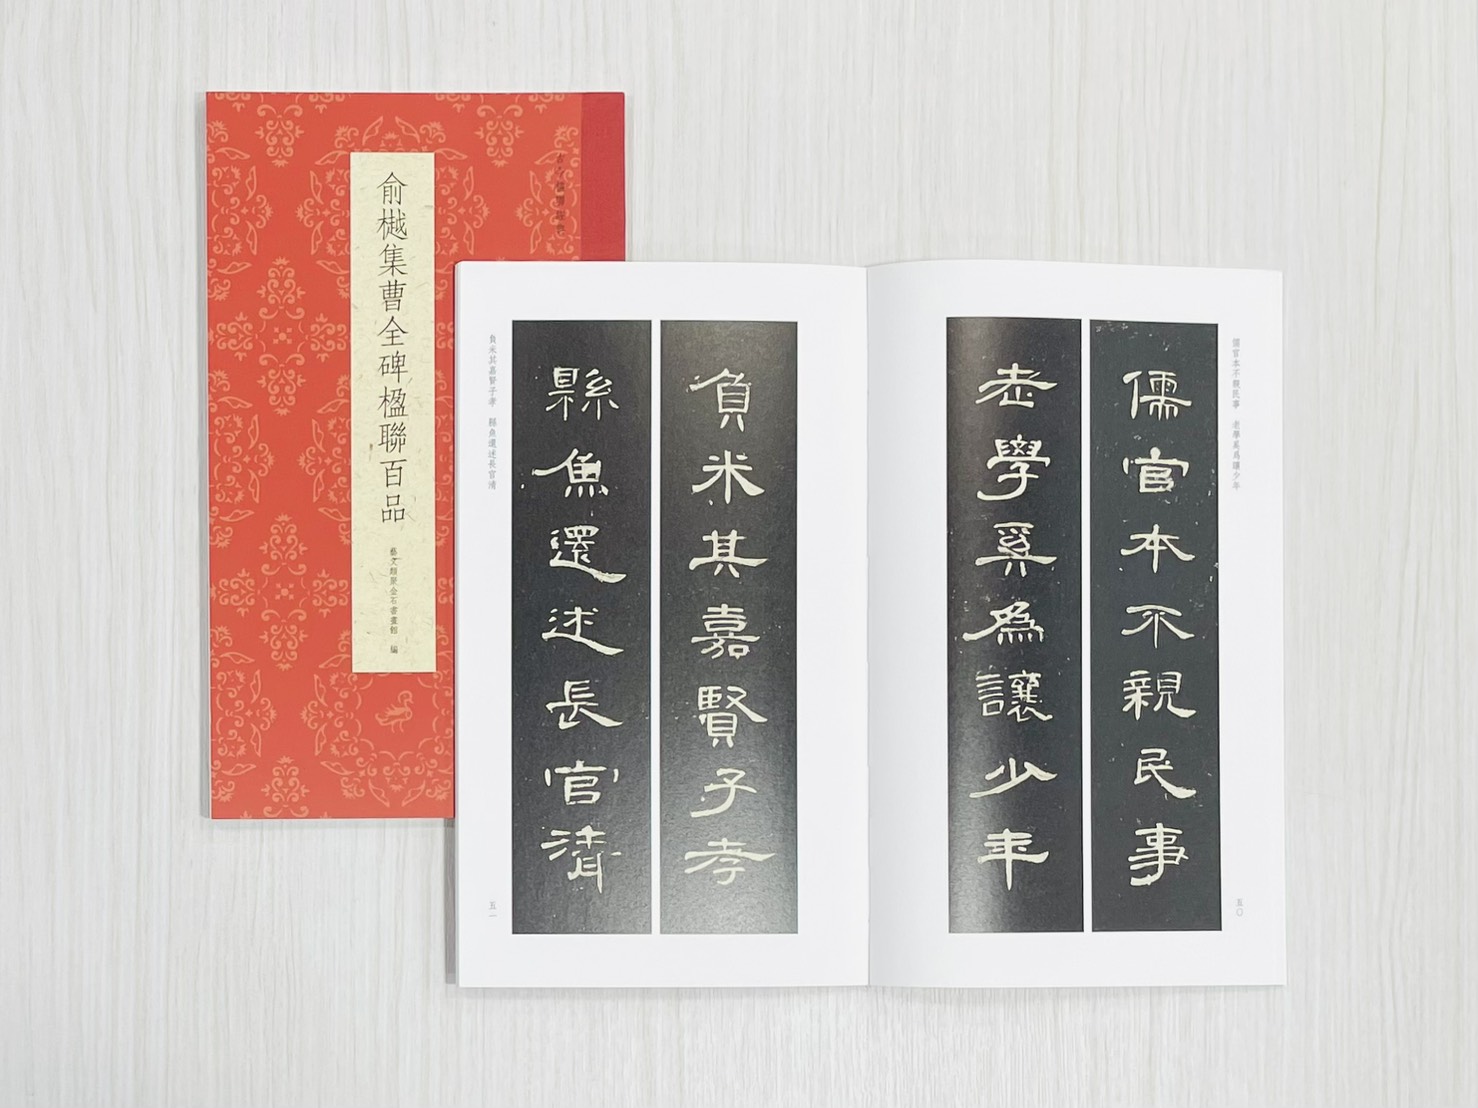 俞樾集曹全碑楹聯百品
藝文類聚金石書畫館　編
儒官本不親民事　老學奚爲讓少年
儒官本不親民事
老學奚爲讓少年
五〇
負米其嘉賢子孝
縣魚還述長官清
負米其嘉賢子孝　縣魚還述長官清
五一